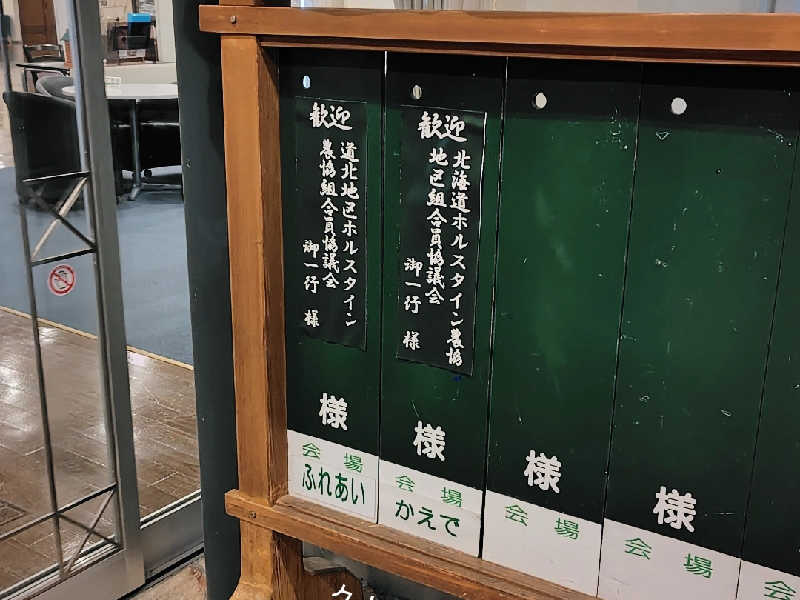 歓迎
道北地区ホルスタイン
農協組合員協議会
御一行 様
様
会場
ふれあい
歓迎
北海道ホルスタイン農協
地区組合員協議会
御一行 様
様
会場
かえで
様
会場
様
会場
会